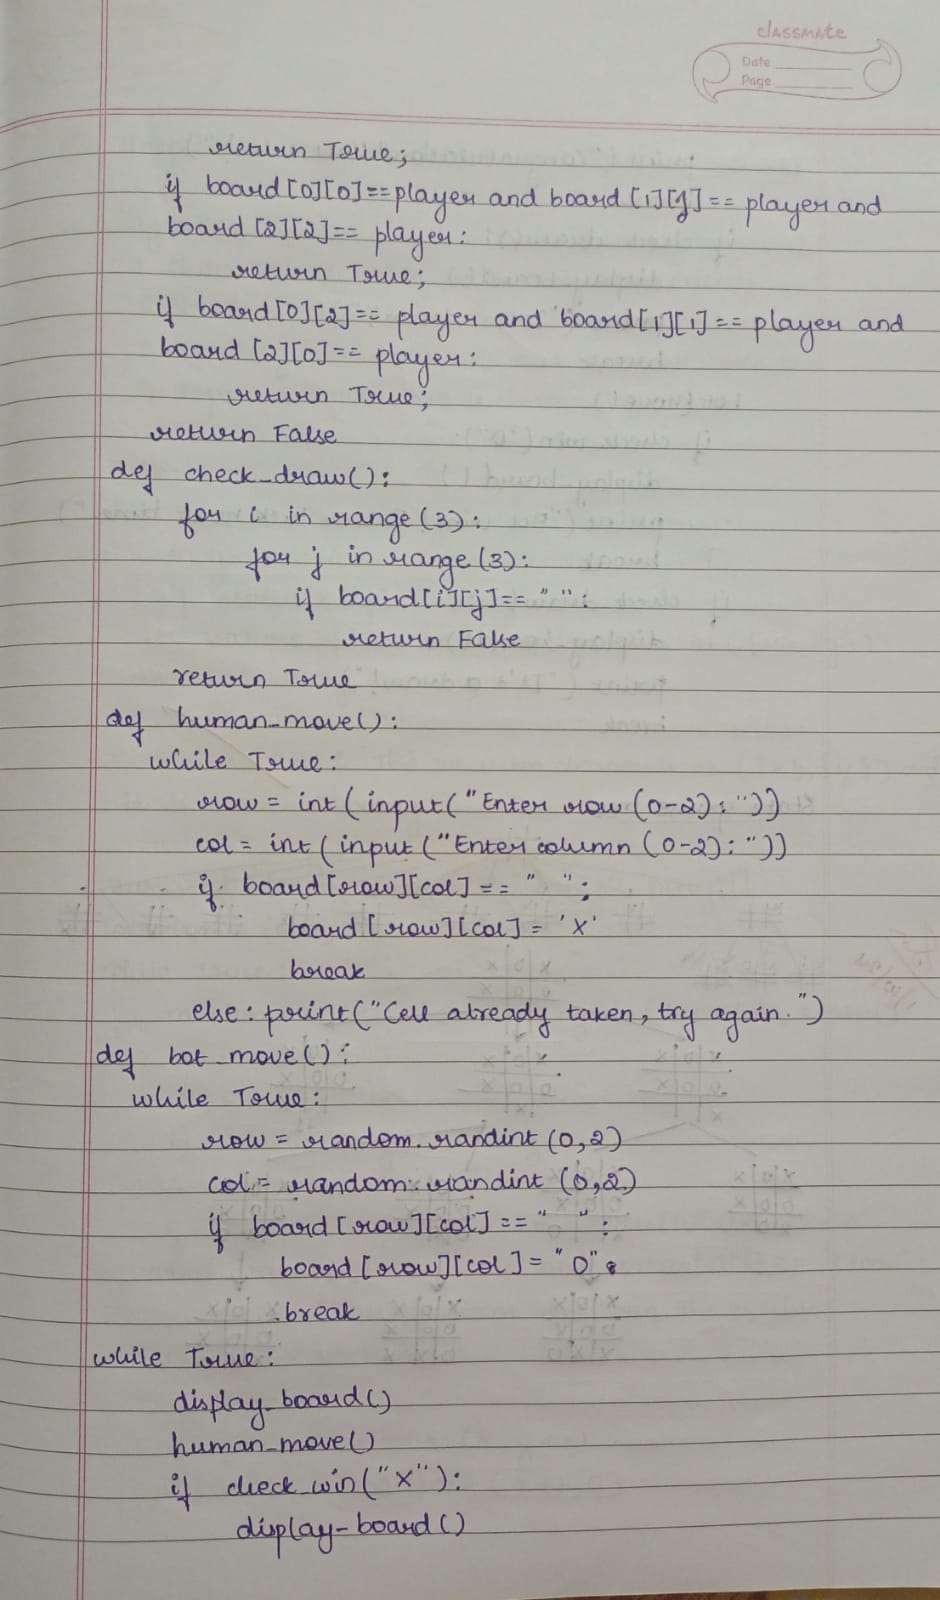 classmate
Date
Page
return True;
if board[0][0]==player and board[1][1]== player and
board[2][2]== player:
return True;
if board[0][2]== player and board[1][1]== player and
board[2][0]== player:
return True;
return False
def check_draw():
for i in range(3):
for j in range(3):
if board[i][j]== " ":
return False
return True
def human_move():
while True:
row = int(input("Enter row (0-2): "))
col = int(input("Enter column (0-2): "))
if board[row][col]== " ":
board[row][col]= 'X'
break
else: print("Cell already taken, try again.")
def bot_move():
while True:
row = random.randint(0,2)
col = random.randint(0,2)
if board[row][col]==" ":
board[row][col]= "O"
break
while True:
display_board()
human_move()
if check_win("X"):
display-board()